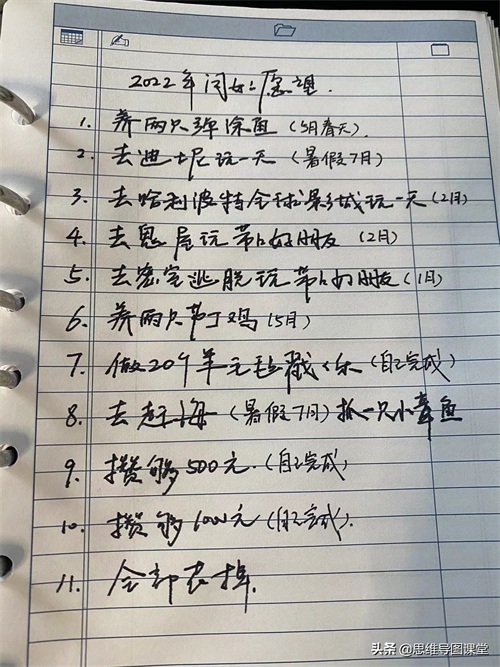 2022年闺女愿望.
1. 养两只弹涂鱼（5月春天）.
2. 去迪士尼玩一天（暑假7月）
3. 去哈利波特全球影城玩一天（2月）
4. 去鬼屋玩带1好朋友（2月）
5. 去密室逃脱玩带1好朋友（1月）
6. 养两只芦丁鸡（5月）
7. 做20个羊毛毡戳戳乐（自己完成）
8. 去赶海（暑假7月）抓一只小章鱼
9. 攒够500元.（自己完成）
10. 攒够1000元（自己完成）.
11. 全部花掉.
头条 @思维导图课堂